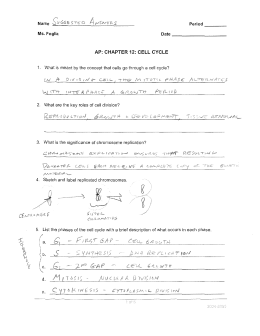 Name SUGGESTED ANSWERS Period
Ms. Foglia Date
AP: CHAPTER 12: CELL CYCLE
1. What is meant by the concept that cells go through a cell cycle?
IN A DIVIDING CELL, THE MITOTIC PHASE ALTERNATES
WITH INTERPHASE A GROWTH PERIOD
2. What are the key roles of cell division?
REPRODUCTION, GROWTH & DEVELOPMENT, TISSUE RENEWAL
3. What is the significance of chromosome replication?
CHROMOSOME REPLICATION ENSURES THAT RESULTING
DAUGHTER CELLS EACH RECEIVE A COMPLETE COPY OF THE
4. Sketch and label replicated chromosomes.
SISTER
CHROMATIDS
5. List the phases of the cell cycle with a brief description of what occurs in each phase.
a. G1 - FIRST GAP - CELL GROWTH
b. S - SYNTHESIS - DNA REPLICATION
c. G2 - 2ND GAP - CELL GROWTH
d. MITOSIS - NUCLEAR DIVISION
e. CYTOKINESIS - CYTOPLASMIC DIVISION